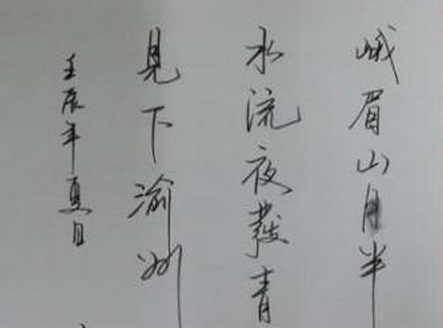 峨眉山月半
水流夜發青
見下渝州
壬辰年夏日